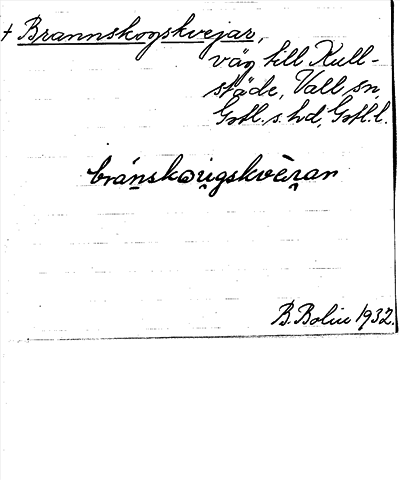 + Brannskogskvejar,
väg till Kull-
städe, Vall sn,
Gotl. s. hd, Gotl. l.
bránskon̥igskvèran
B. Bolin 1932.